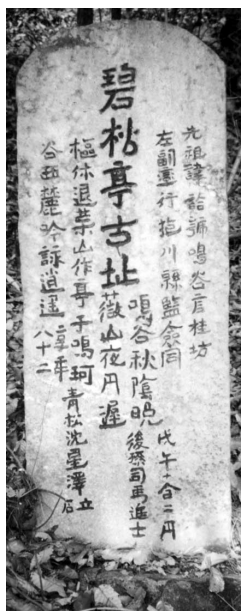 先祖諱詥號鳴谷彦桂坊
左副率行龍川縣監僉同
碧松亭古址
鳴谷秋陰晩
薇山夜円遲
樞休退葉山作亭于鳴珂
谷西麓吟詠逍遙享年八十二
戊午十合二円
後孫司馬進士
青松沈星澤立石